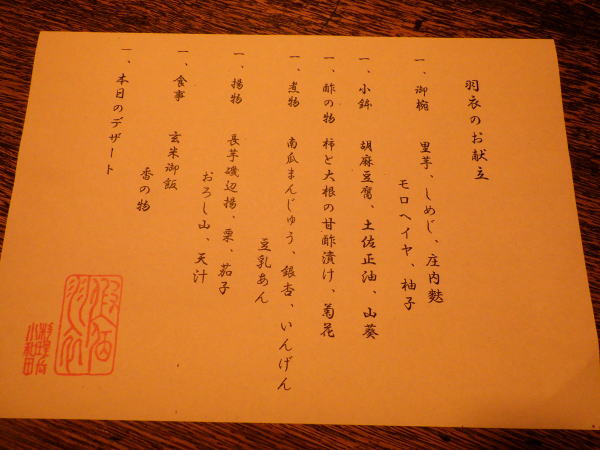 羽衣のお献立
一、御椀　里芋、しめじ、庄内麩
モロヘイヤ、柚子
一、小鉢　胡麻豆腐、土佐正油、山葵
一、酢の物　柿と大根の甘酢漬け、菊花
一、煮物　南瓜まんじゅう、銀杏、いんげん
豆乳あん
一、揚物　長芋磯辺揚、栗、茄子
おろし山、天汁
一、食事　玄米御飯
香の物
一、本日のデザート